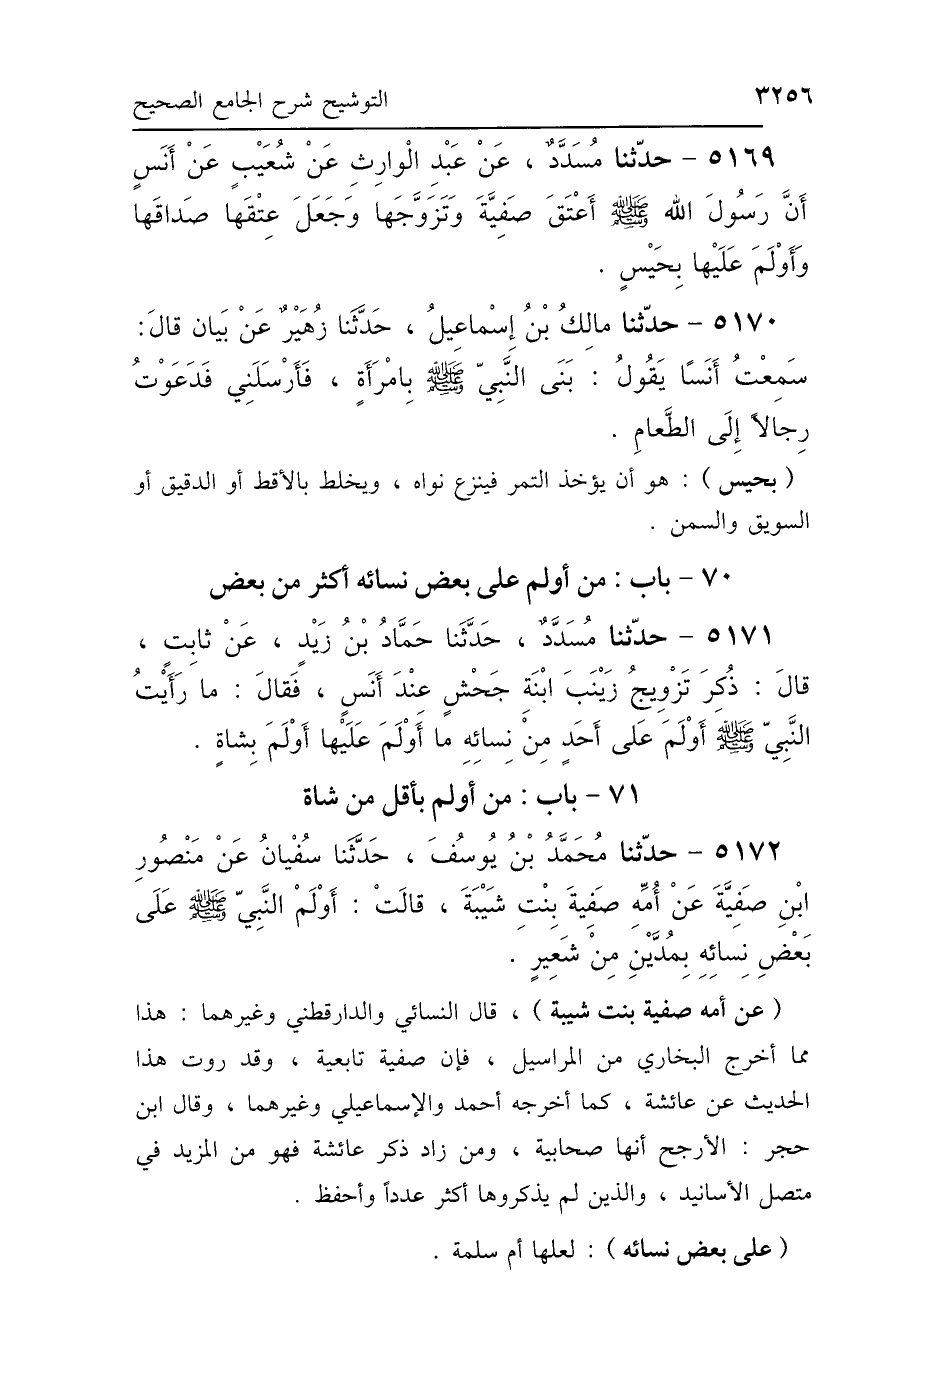 ٣٢٥٦
التوشيح شرح الجامع الصحيح
٥١٦٩ - حدّثنا مُسَدَّدٌ ، عَنْ عَبْدِ الْوارِثِ عَنْ شُعَيْبٍ عَنْ أَنَسٍ
أَنَّ رَسُولَ الله ﷺ أَعْتَقَ صَفِيَّةَ وَتَزَوَّجَها وَجَعَلَ عِتْقَها صَداقَها
وَأَوْلَمَ عَلَيْها بِحَيْسٍ .
٥١٧٠ - حدّثنا مالِكُ بْنُ إِسْماعِيلُ ، حَدَّثَنا زُهَيْرٌ عَنْ بَيان قالَ :
سَمِعْتُ أَنَسًا يَقُولُ : بَنَى النَّبِيّ ﷺ بِامْرَأَةٍ ، فَأَرْسَلَنِي فَدَعَوْتُ
رِجالاً إِلَى الطَّعامِ .
( بحيس ) : هو أن يؤخذ التمر فينزع نواه ، ويخلط بالأقط أو الدقيق أو
السويق والسمن .
٧٠ - باب : من أولم على بعض نسائه أكثر من بعض
٥١٧١ - حدّثنا مُسَدَّدٌ ، حَدَّثَنا حَمَّادُ بْنُ زَيْدٍ ، عَنْ ثابِتٍ ،
قالَ : ذُكِرَ تَزْوِيجُ زَيْنَبَ ابْنَةِ جَحْشٍ عِنْدَ أَنَسٍ ، فَقالَ : ما رَأَيْتُ
النَّبِيّ ﷺ أَوْلَمَ عَلى أَحَدٍ مِنْ نِسائِهِ ما أَوْلَمَ عَلَيْها أَوْلَمَ بِشاةٍ .
٧١ - باب : من أولم بأقل من شاة
٥١٧٢ - حدّثنا مُحَمَّدُ بْنُ يُوسُفَ ، حَدَّثَنا سُفْيانُ عَنْ مَنْصُورِ
ابْنِ صَفِيَّةَ عَنْ أُمِّهِ صَفِيةَ بِنْتِ شَيْبَةَ ، قالَتْ : أَوْلَمَ النَّبِيّ ﷺ عَلَى
بَعْضِ نِسائِهِ بِمُدَّيْنِ مِنْ شَعِيرٍ .
( عن أمه صفية بنت شيبة ) ، قال النسائي والدارقطني وغيرهما : هذا
مما أخرج البخاري من المراسيل ، فإن صفية تابعية ، وقد روت هذا
الحديث عن عائشة ، كما أخرجه أحمد والإسماعيلي وغيرهما ، وقال ابن
حجر : الأرجح أنها صحابية ، ومن زاد ذكر عائشة فهو من المزيد في
متصل الأسانيد ، والذين لم يذكروها أكثر عدداً وأحفظ .
( على بعض نسائه ) : لعلها أم سلمة .